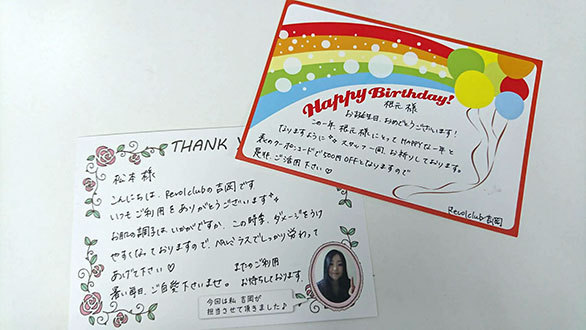 Happy Birthday!
根元 様
お誕生日、おめでとうございます!
この一年、根元 様にとってHAPPYな一年と
なりますように スタッフ一同、お祈りしております。
裏のクーポンコードで500円OFFとなりますので
是非、ご活用下さい♡
Revolclub 吉岡
THANK
松本 様
こんにちは、Revolclubの吉岡です
いつもご利用をありがとうございます
お肌の調子はいかがですか。この時季、ダメージをうけ
やすくなっておりますので、でしっかり労わって
あげて下さい♡ またのご利用
暑い毎日、ご自愛下さいませ。 お待ちしております
今回は私 吉岡が
担当させて頂きました♪